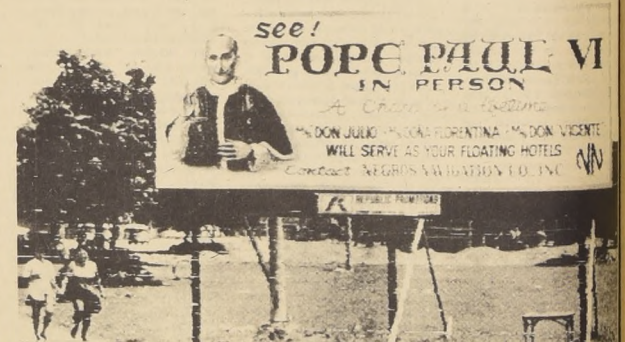 see!
POPE PAUL VI
IN PERSON
A Chance of a lifetime
M/V DON JULIO · M/V DOÑA FLORENTINA · M/V DON VICENTE
WILL SERVE AS YOUR FLOATING HOTELS
Contact NEGROS NAVIGATION CO., INC.
NN
REPUBLIC PROMOTIONS